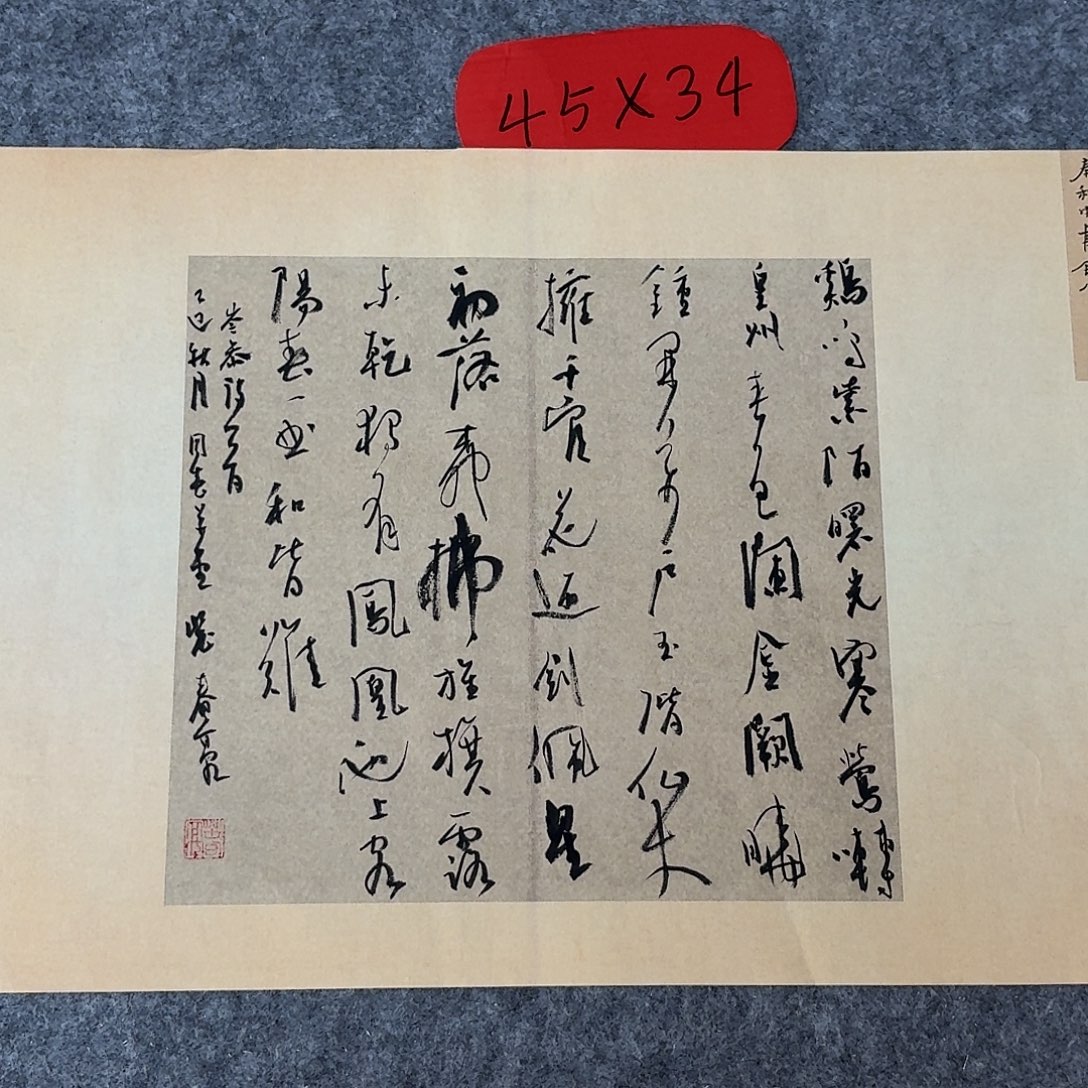 45X34
鷄鳴紫陌曙光寒鶯囀
皇州春色闌金闕曉
鐘開萬户玉階仙仗
擁千官花迎劍佩星
初落柳拂旌旗露
未乾獨有鳳凰池上客
陽春一曲和皆難
岑參詩一首
乙巳秋月